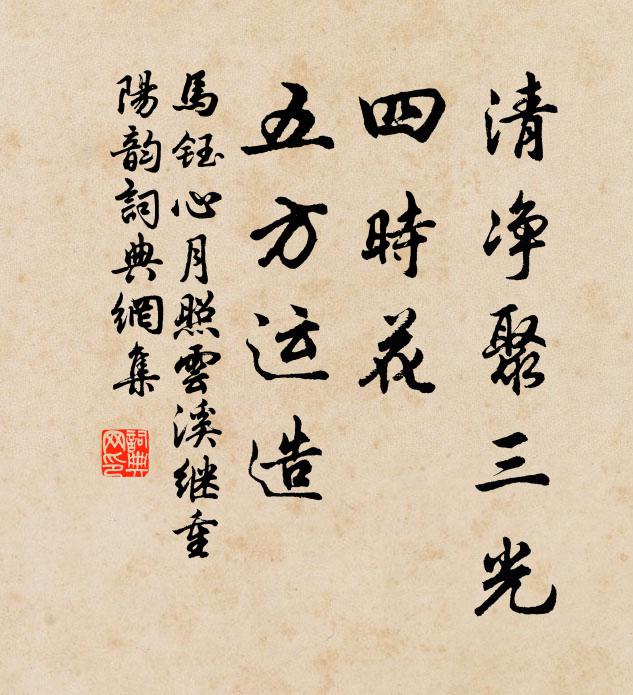 清净聚三光
四時花
五方运造
馬鈺心月照雲溪继重
陽韵詞典網集
詞典网印